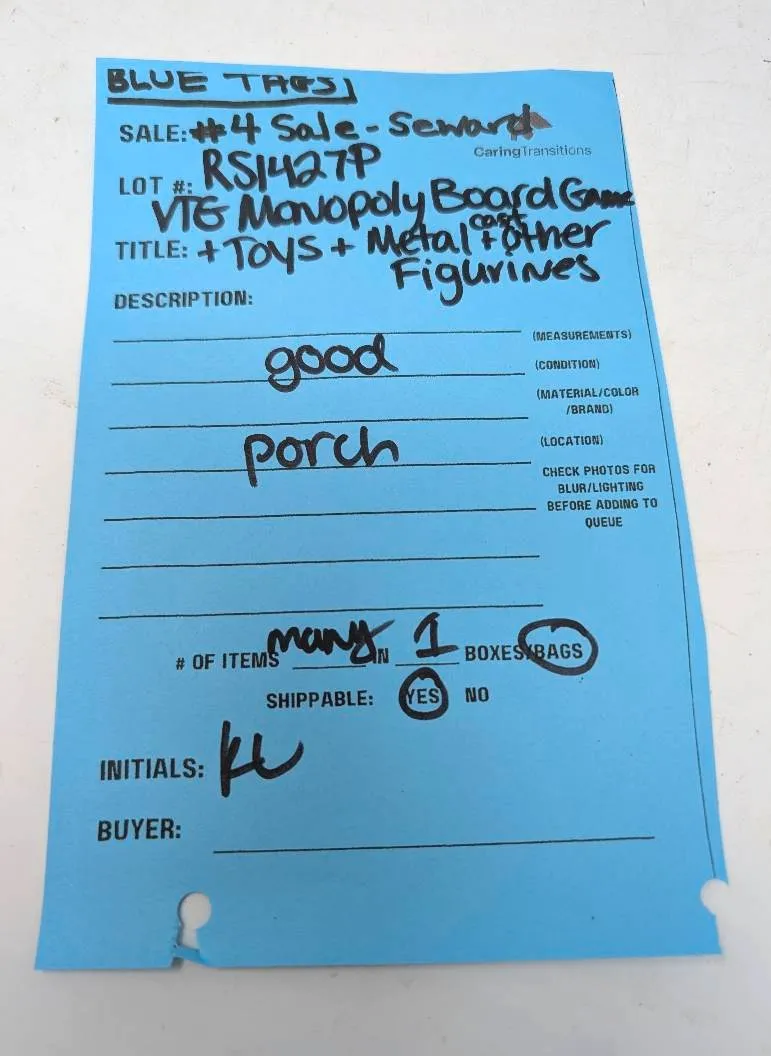 BLUE TAGS
SALE: #4 Sale - Seward
CaringTransitions
LOT #: RS1427P
VTG Monopoly Board Game
TITLE: + Toys + Metal cast + other
Figurines
DESCRIPTION:
(MEASUREMENTS)
good (CONDITION)
(MATERIAL/COLOR
/BRAND)
porch (LOCATION)
CHECK PHOTOS FOR
BLUR/LIGHTING
BEFORE ADDING TO
QUEUE
# OF ITEMS many IN 1 BOXES/BAGS
SHIPPABLE: YES NO
INITIALS: KL
BUYER: